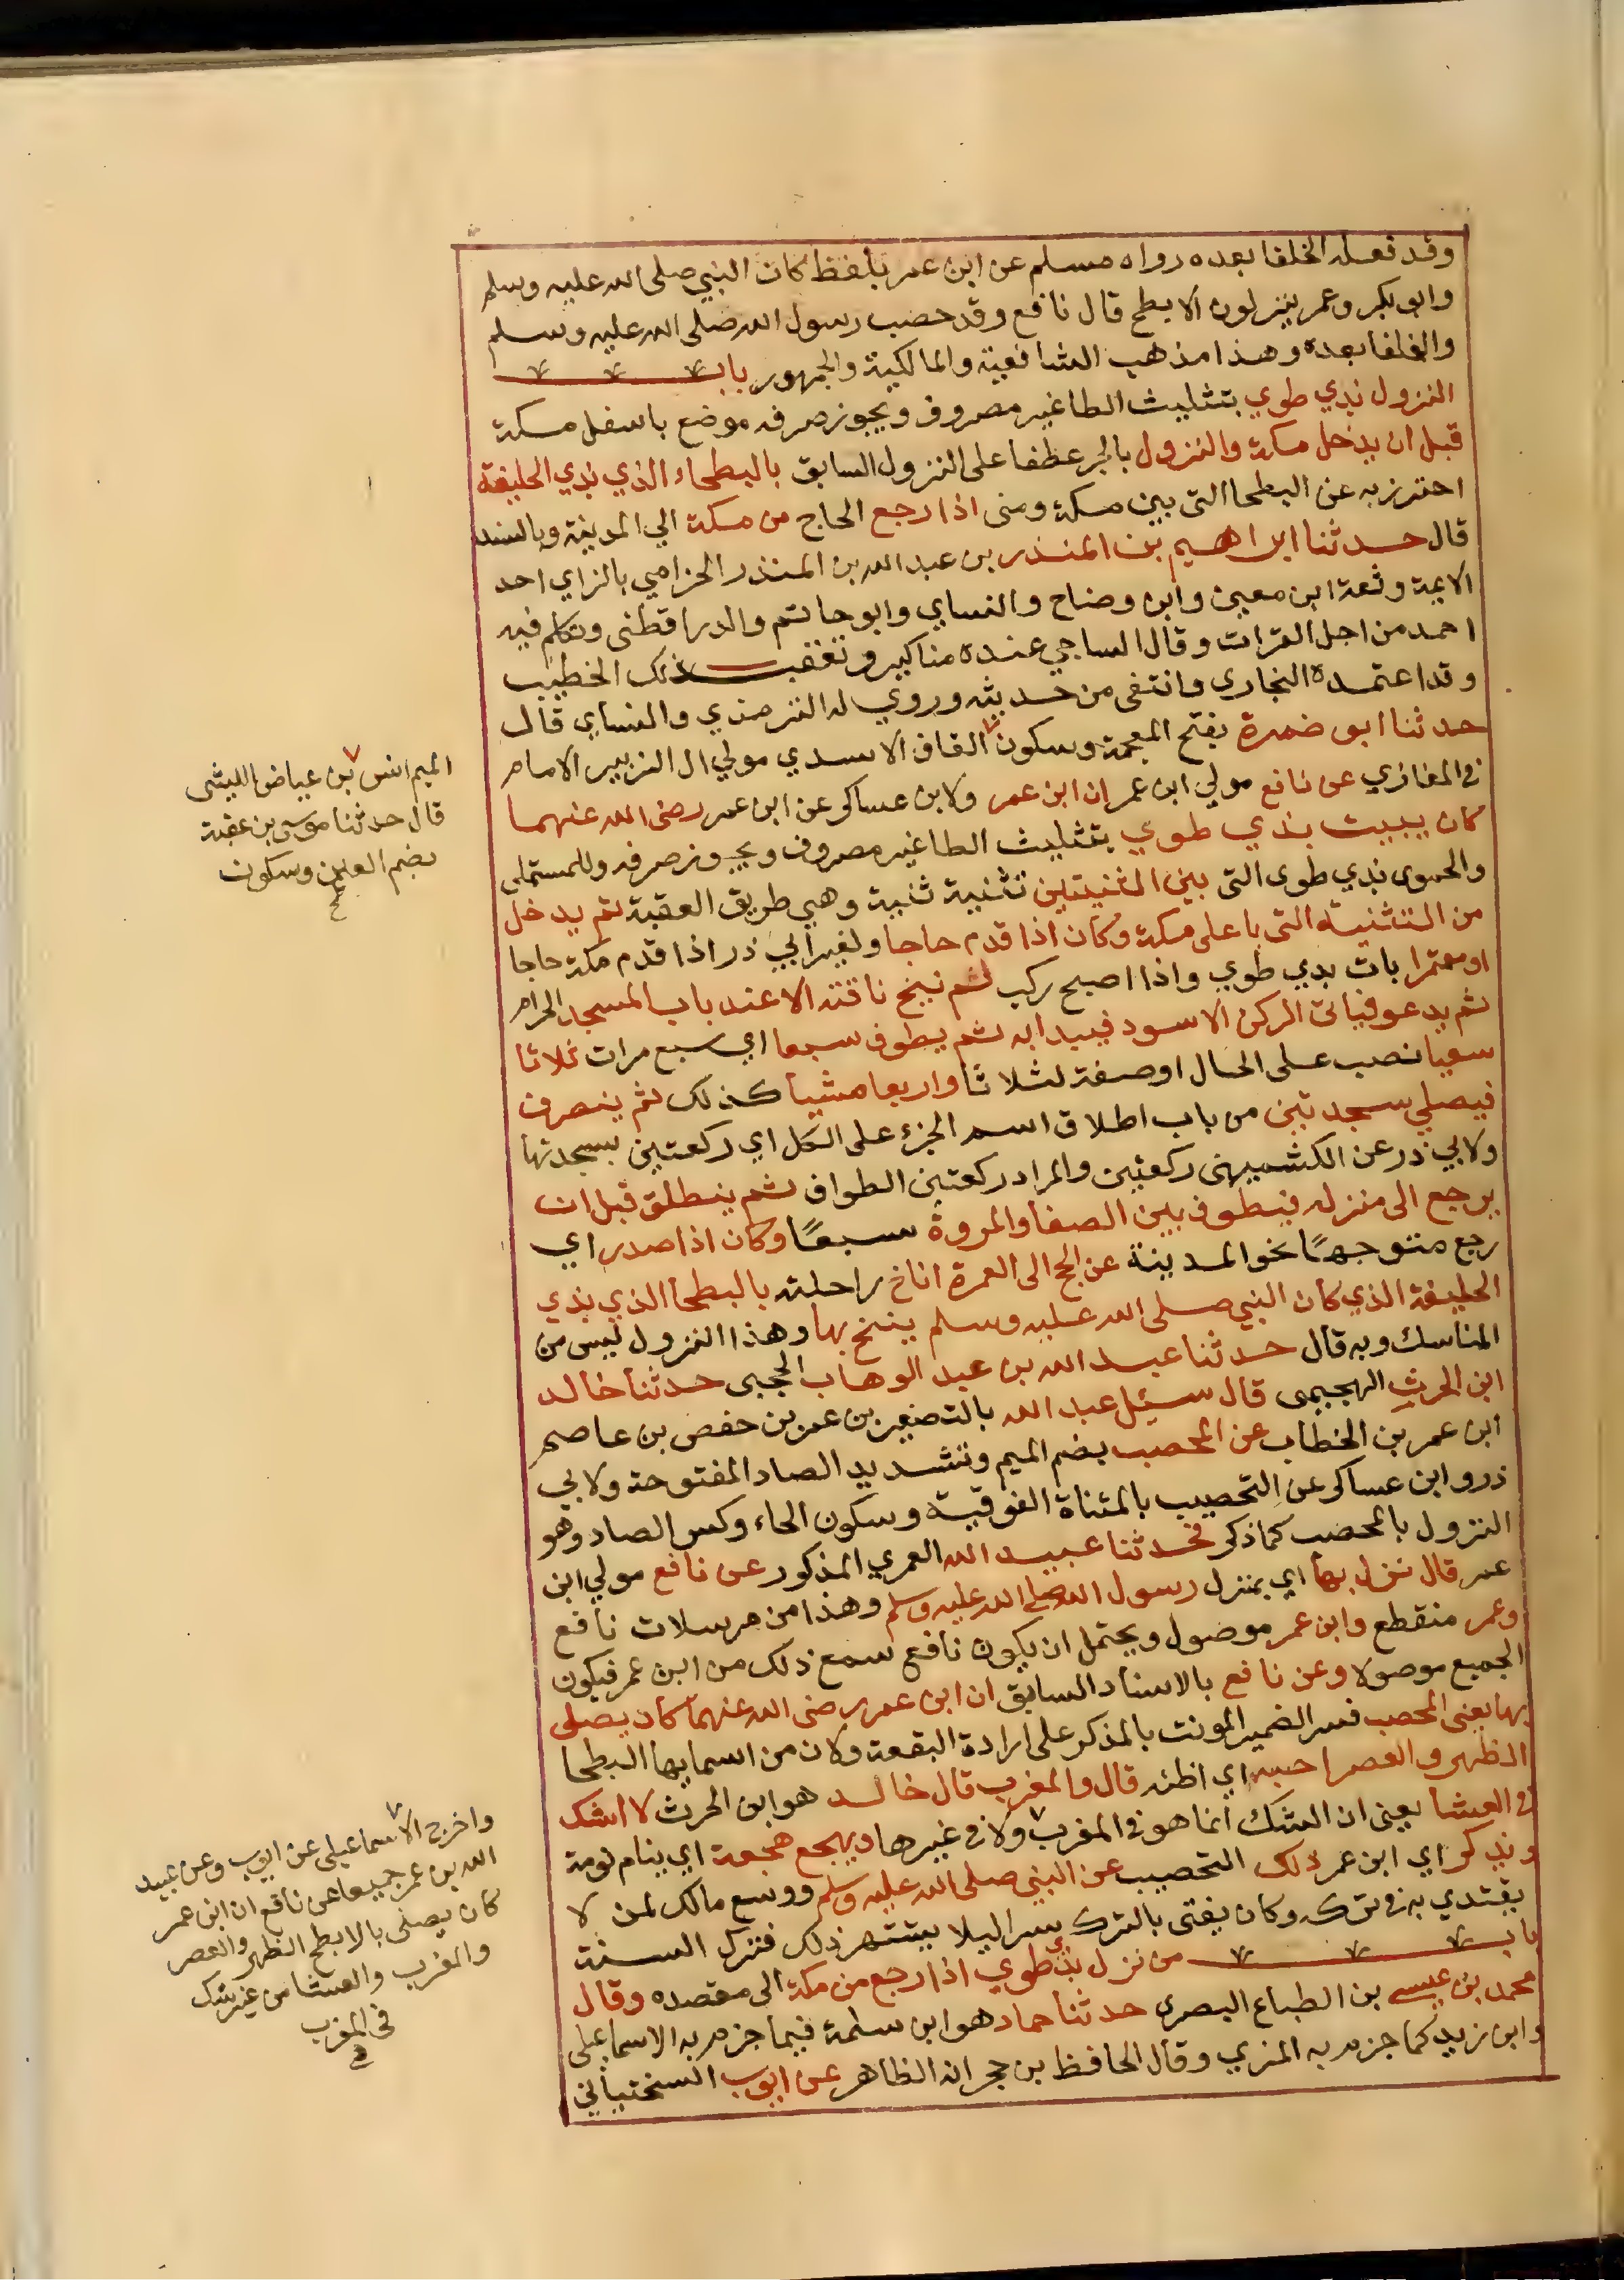 وقد فعله الخلفا بعده رواه مسلم عن ابن عمر بلفظ كان النبي صلى الله عليه وسلم
وابو بكر وعمر ينزلون الابطح قال نافع وقد حصب رسول الله صلى الله عليه وسلم
والخلفا بعده وهذا مذهب الشافعية والمالكية والجمهور باب
النزول بذي طوي بتثليث الطا غير مصروف ويجوز صرفه موضع باسفل مكة
قبل ان يدخل مكة والنزول بالجر عطفا على النزول السابق بالبطحاء الذي بذي الحليفة
احترز به عن البطحا التي بين مكة ومنى اذا رجع الحاج من مكة الي المدينة وبالسند
قال حدثنا ابراهيم بن المنذر بن عبد الله بن المنذر الحزامي بالزاي احد
الايمة وثقة ابن معين وابن وضاح والنساي وابو حاتم والدراقطني وتكلم فيه
احمد من اجل القرات وقال الساجي عنده مناكير وتعقب ذلك الخطيب
وقد اعتمده البخاري وانتقى من حديثه وروي له الترمذي والنساي قال
حدثنا ابو ضمرة بفتح المعجمة وسكون القاف الاسدي مولي ال الزبير الامام
في المغازي عن نافع مولي ابن عمر ان ابن عمر ولابن عساكر عن ابن عمر رضي الله عنهما
كان يبيت بذي طوي بتثليث الطا غير مصروف ويجوز صرفه وللمستملي
والحموى بذي طوى التي بين الثنيتين تثنية ثنية وهي طريق العقبة ثم يدخل
من الثنية التي باعلى مكة وكان اذا قدم حاجا ولغير ابي ذر اذا قدم مكة حاجا
او معتمرا بات بذي طوي واذا اصبح ركب لم ينخ ناقته الا عند باب المسجد الحرام
ثم يدعو فياتي الركن الاسود فيبدا به ثم يطوف سبعا اي سبع مرات ثلاثا
سعيا نصب على الحال او صفة لثلاثا واربعا مشيا كذلك ثم ينصرف
فيصلي سجدتين من باب اطلاق اسم الجزء على الكل اي ركعتين بسجدتها
ولابي ذر عن الكشميهنى ركعتين والمراد ركعتين الطواف ثم ينطلق قبل ان
يرجع الى منزله فيطوف بين الصفا والمروة سبعًا وكان اذا صدر اي
رجع متوجهًا نحو المدينة عن الحج الى العمرة اناخ راحلته بالبطحا الذي بذي
الحليفة الذي كان النبي صلى الله عليه وسلم ينيخ بها وهذا النزول ليس من
المناسك وبه قال حدثنا عبد الله بن عبد الوهاب الحجبى حدثنا خالد
ابن الحرث الهجيمى قال سئل عبد الله بالتصغير بن عمر بن حفص بن عاصم
ابن عمر بن الخطاب عن المحصب بضم الميم وتشديد الصاد المفتوحة ولابي
ذر وابن عساكر عن التحصيب بالمثناة الفوقية وسكون الحاء وكسر الصاد وهو
النزول بالمحصب كما ذكر فحدثنا عبيد الله العمري المذكور عن نافع مولي ابن
عمر قال نزل بها اي بمنزل رسول الله صلى الله عليه وسلم وهذا من مرسلات نافع
وعمر منقطع وابن عمر موصول ويحتمل ان يكون نافع سمع ذلك من ابن عمر فيكون
الجميع موصولا وعن نافع بالاسناد السابق ان ابن عمر رضي الله عنهما كان يصلى
بها يعنى المحصب فسر الضمير المونث بالمذكر على ارادة البقعة ولان من اسمايها البطحا
الظهر والعصر احسبه اي اظنه قال والمغرب قال خالد هو ابن الحرث لا اشك
في العشا يعنى ان الشك انما هو في المغرب ولا في غيرها ويهجع هجعة اي ينام نومة
ويذكر اي ابن عمر ذلك التحصيب عن النبي صلى الله عليه وسلم ووسع مالك لمن لا
يقتدي به في تركه وكان يفتى بالترك سرا ليلا يشتهر ذلك فتترك السنة
باب من نزل بذي طوي اذا رجع من مكة الى مقصده وقال
محمد بن عيسى بن الطباع البصرى حدثنا حماد هو ابن سلمة فيما جزم به الاسماعيلى
وابن زيد كما جزم به المزي وقال الحافظ بن حجر انه الظاهر عن ايوب السختياني
الميم انس بن عياض الليثى
قال حدثنا موسى بن عقبة
بضم العين وسكون
واخرج الاسماعيلى عن ايوب وعن عبيد
الله بن عمر جميعا عن نافع ان ابن عمر
كان يصلى بالابطح الظهر والعصر
والمغرب والعشا من غير شك
في المغرب